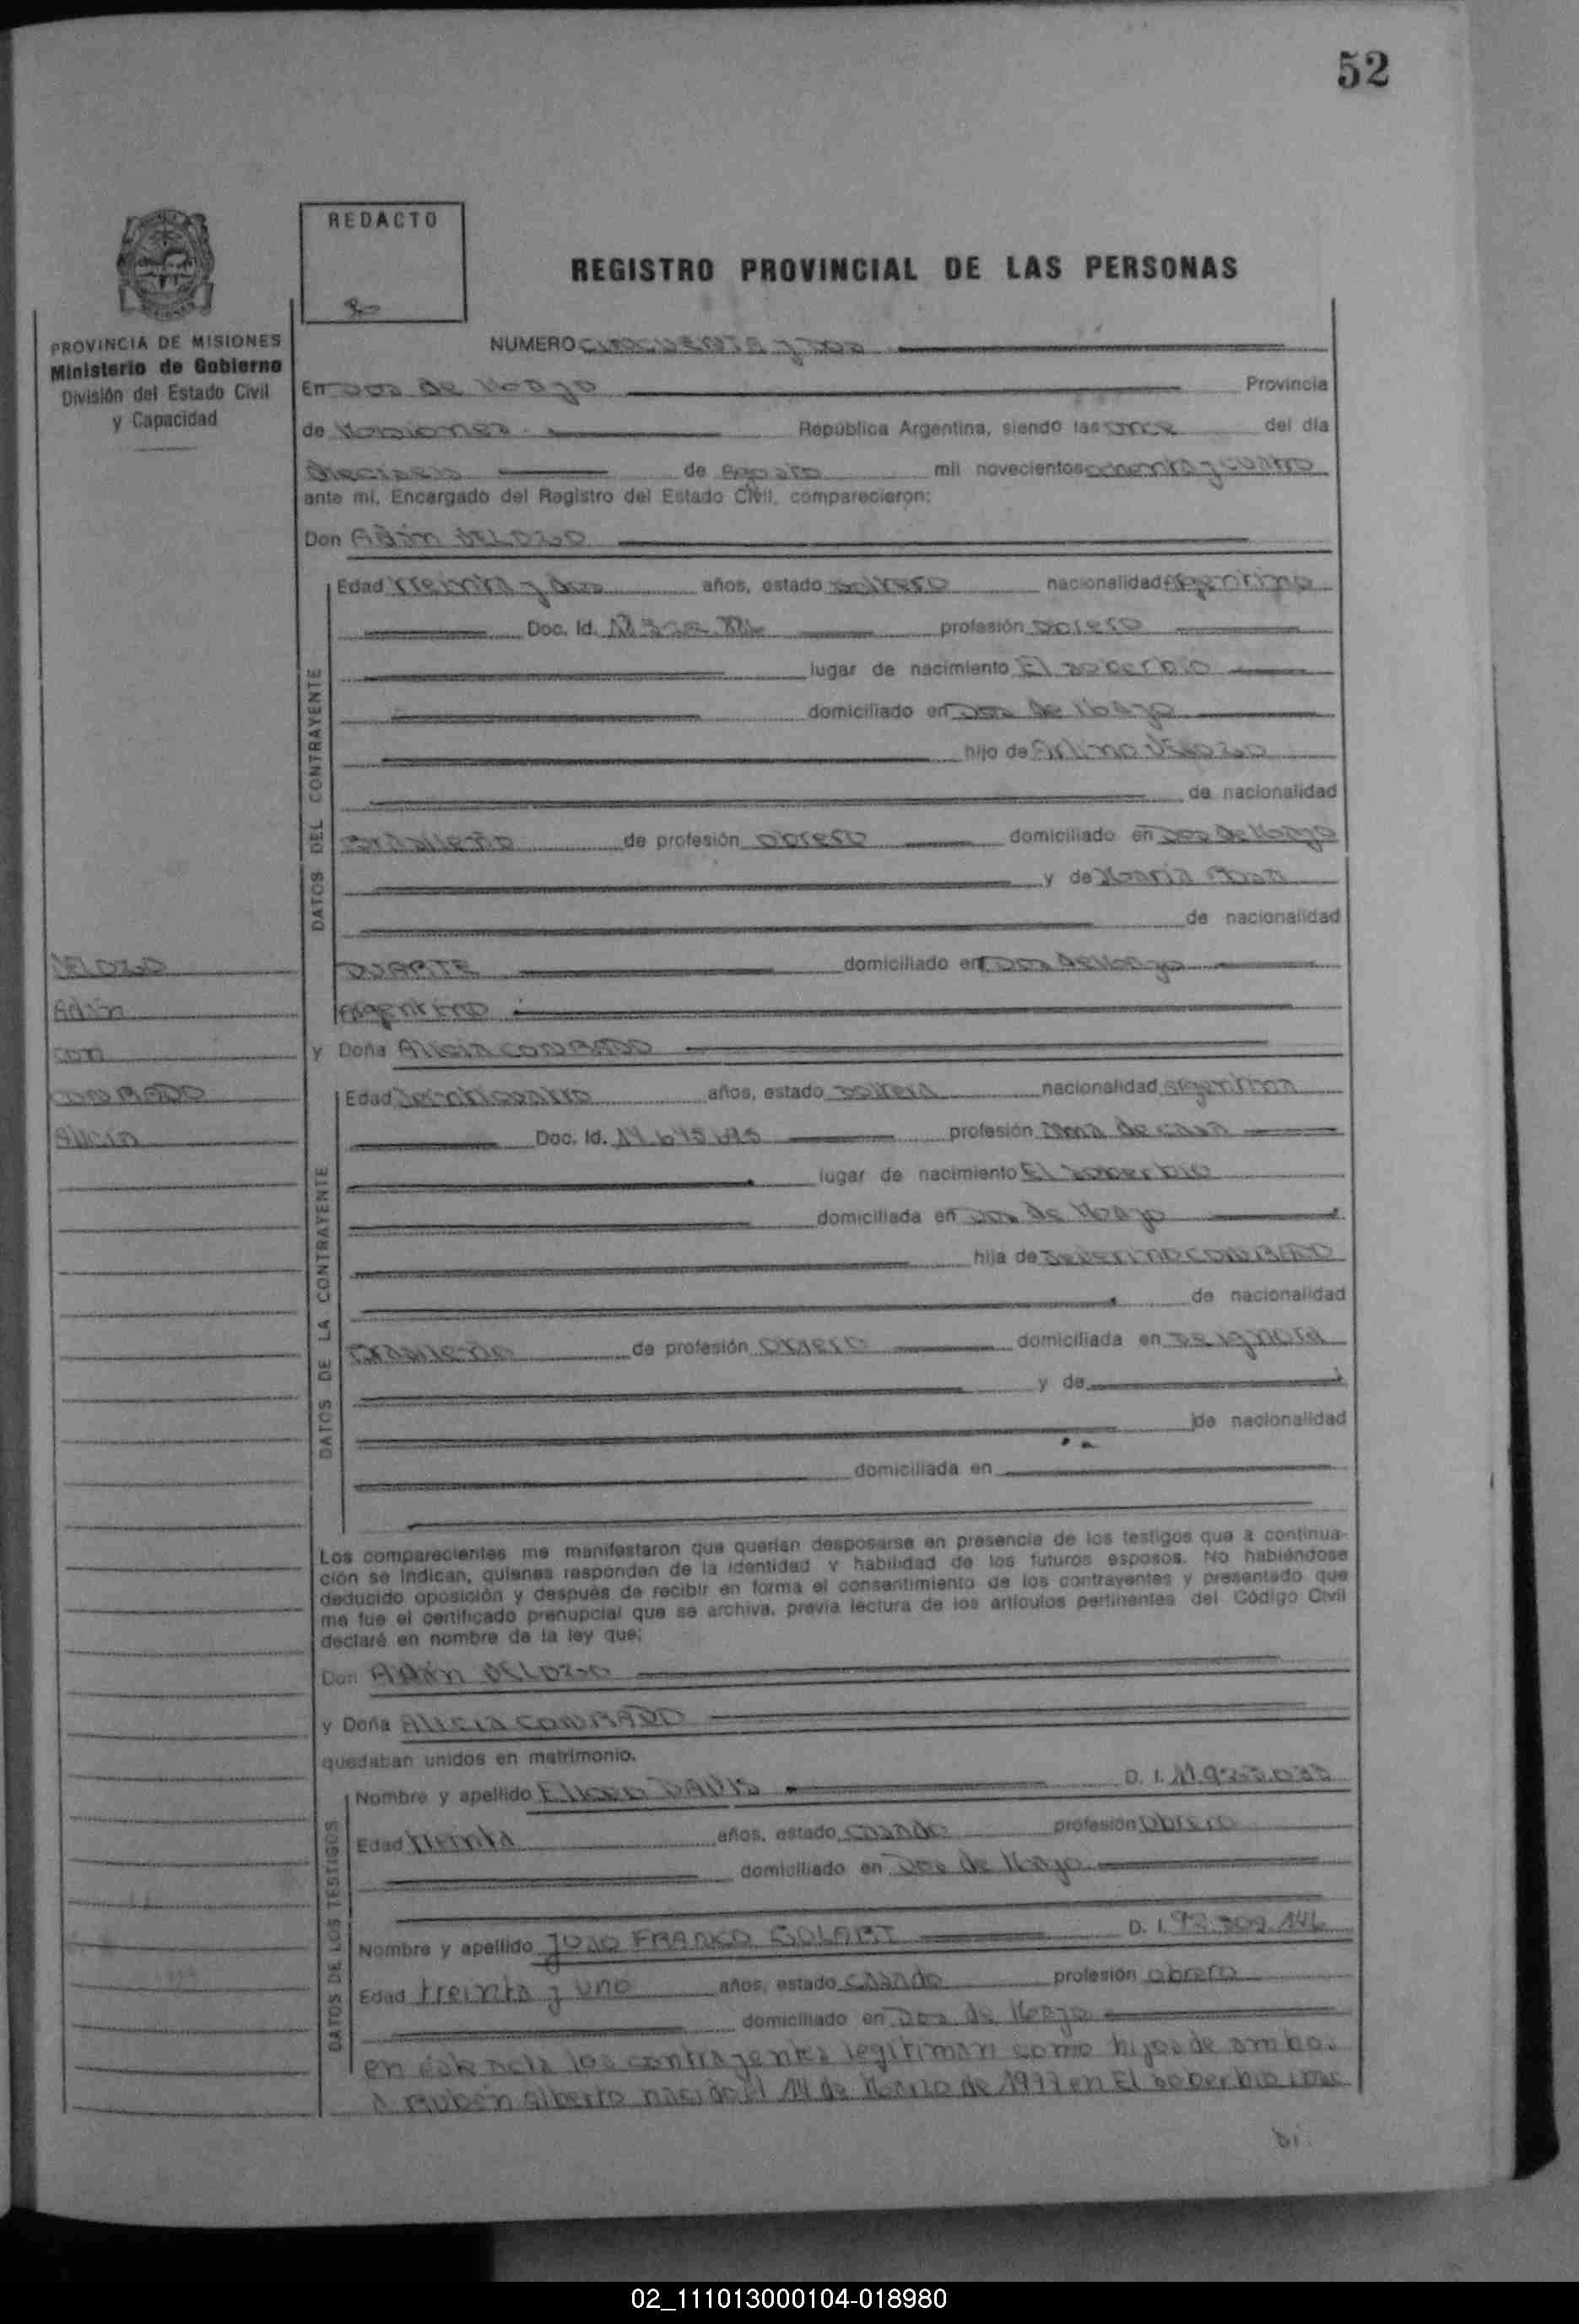 52
REDACTO
REGISTRO PROVINCIAL DE LAS PERSONAS
PROVINCIA DE MISIONES
Ministerio de Gobierno
División del Estado Civil
y Capacidad
NUMERO cincuenta y dos
En Dos de Mayo Provincia
de Misiones República Argentina, siendo las once del día
dieciseis de Agosto mil novecientos ochenta y cuatro
ante mí, Encargado del Registro del Estado Civil, comparecieron:
Don Adán VELOZO
DATOS DEL CONTRAYENTE
Edad treinta y dos años, estado soltero nacionalidad Argentino
Doc. Id. profesión obrero
lugar de nacimiento El soberbio
domiciliado en Dos de Mayo
hijo de VELOZO
de nacionalidad
Brasileño de profesión obrero domiciliado en Dos de Mayo
y de María
de nacionalidad
DUARTE domiciliado en Dos de Mayo
Argentino
VELOZO
Adán
con
CONRADO
Alicia
y Doña Alicia CONRADO
DATOS DE LA CONTRAYENTE
Edad veinticuatro años, estado soltera nacionalidad argentina
Doc. Id. profesión ama de casa
lugar de nacimiento El soberbio
domiciliada en Dos de Mayo
hija de Severino CONRADO
de nacionalidad
Brasileño de profesión obrero domiciliada en se ignora
y de
de nacionalidad
domiciliada en
Los comparecientes me manifestaron que querían desposarse en presencia de los testigos que a continua-
ción se indican, quienes responden de la identidad y habilidad de los futuros esposos. No habiéndose
deducido oposición y después de recibir en forma el consentimiento de los contrayentes y presentado que
me fue el certificado prenupcial que se archiva, previa lectura de los artículos pertinentes del Código Civil
declaré en nombre de la ley que;
Don Adán VELOZO
y Doña Alicia CONRADO
quedaban unidos en matrimonio.
DATOS DE LOS TESTIGOS
Nombre y apellido D. I.
Edad treinta años, estado casado profesión obrero
domiciliado en Dos de Mayo
Nombre y apellido JOAO FRANCO GOLART D. I. 92.309.146
Edad treinta y uno años, estado casado profesión obrero
domiciliado en Dos de Mayo
en éste acta los contrayentes legitiman como hijos de ambos
a Rubén Alberto nacido el 14 de Marzo de 1977 en El soberbio
02_111013000104-018980